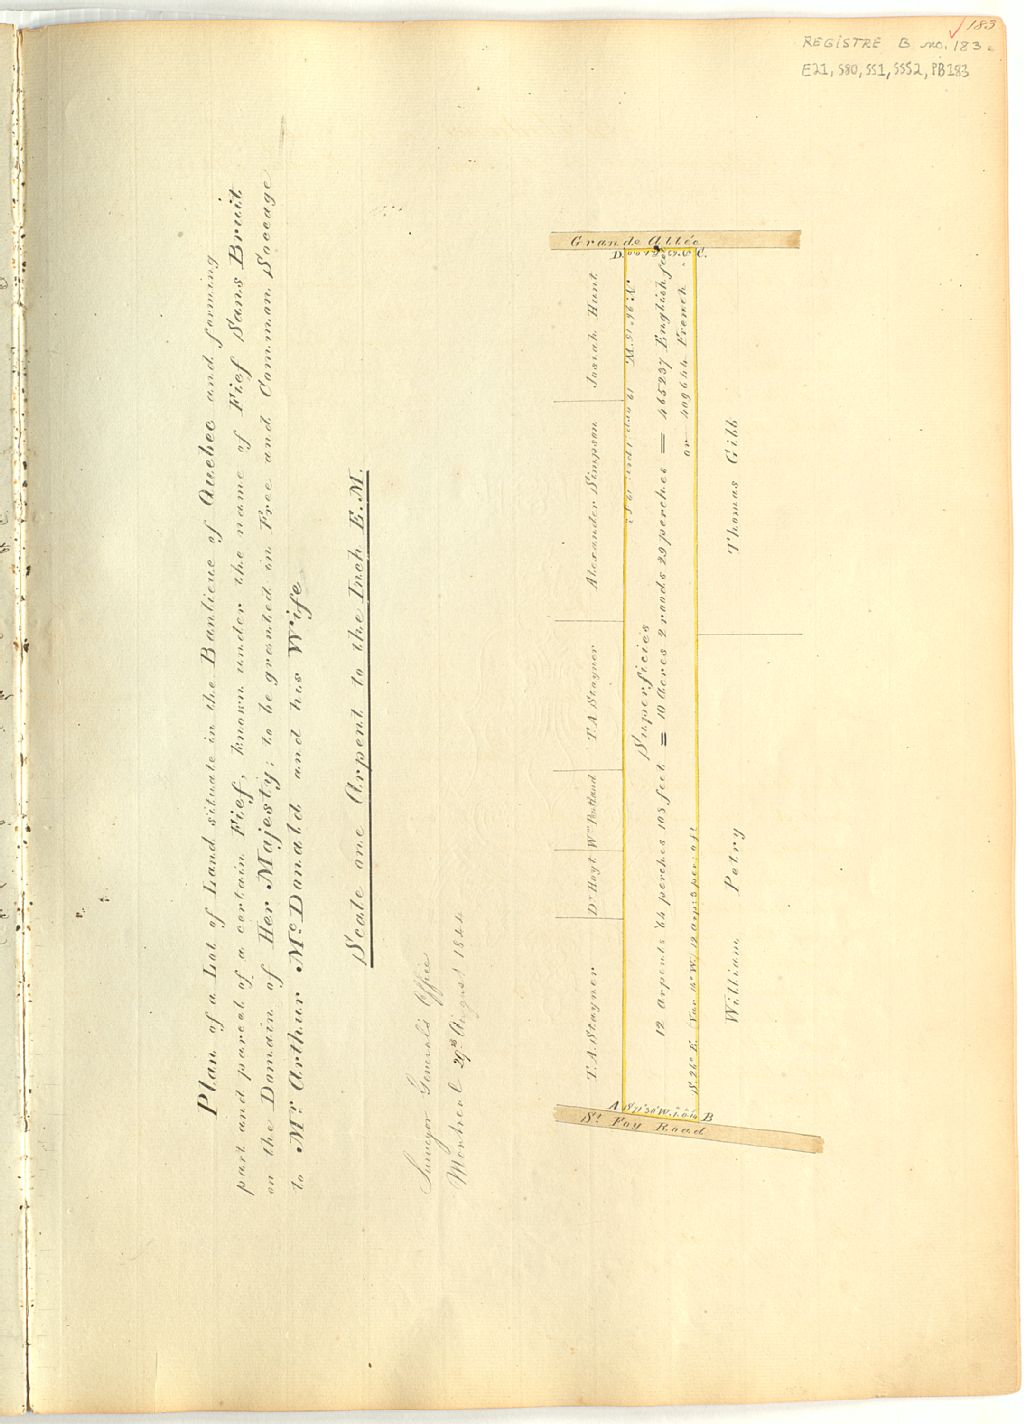 183
REGISTRE B no. 183.
E21, S80, SS1, SSS2, PB183
Plan of a Lot of Land situate in the Banlieue of Quebec and forming
part and parcel of a certain Fief, known under the name of Fief Sans Bruit
on the Domain of Her Majesty; to be granted in Free and Common Soccage
to Mr Arthur McDonald and his Wife
Scale one Arpent to the Inch E.M.
Surveyor General's Office
Montreal 29th August 1844
Grande Allée
D. C.
Josiah Hunt
Alexander Simpson
T. A Stayner
Wm Pentland
Dr Hoyt
T. A. Stayner
Superficies
12 Arpents 44 perches 103 feet = 10 Acres 2 roods 29 perches = 465237 English feet
or 409644 French
S. 26° E. (Var 14° W.) 12 arp: 5 per: 0 ft
Thomas Gibb
William Petry
A B
St Foy Road